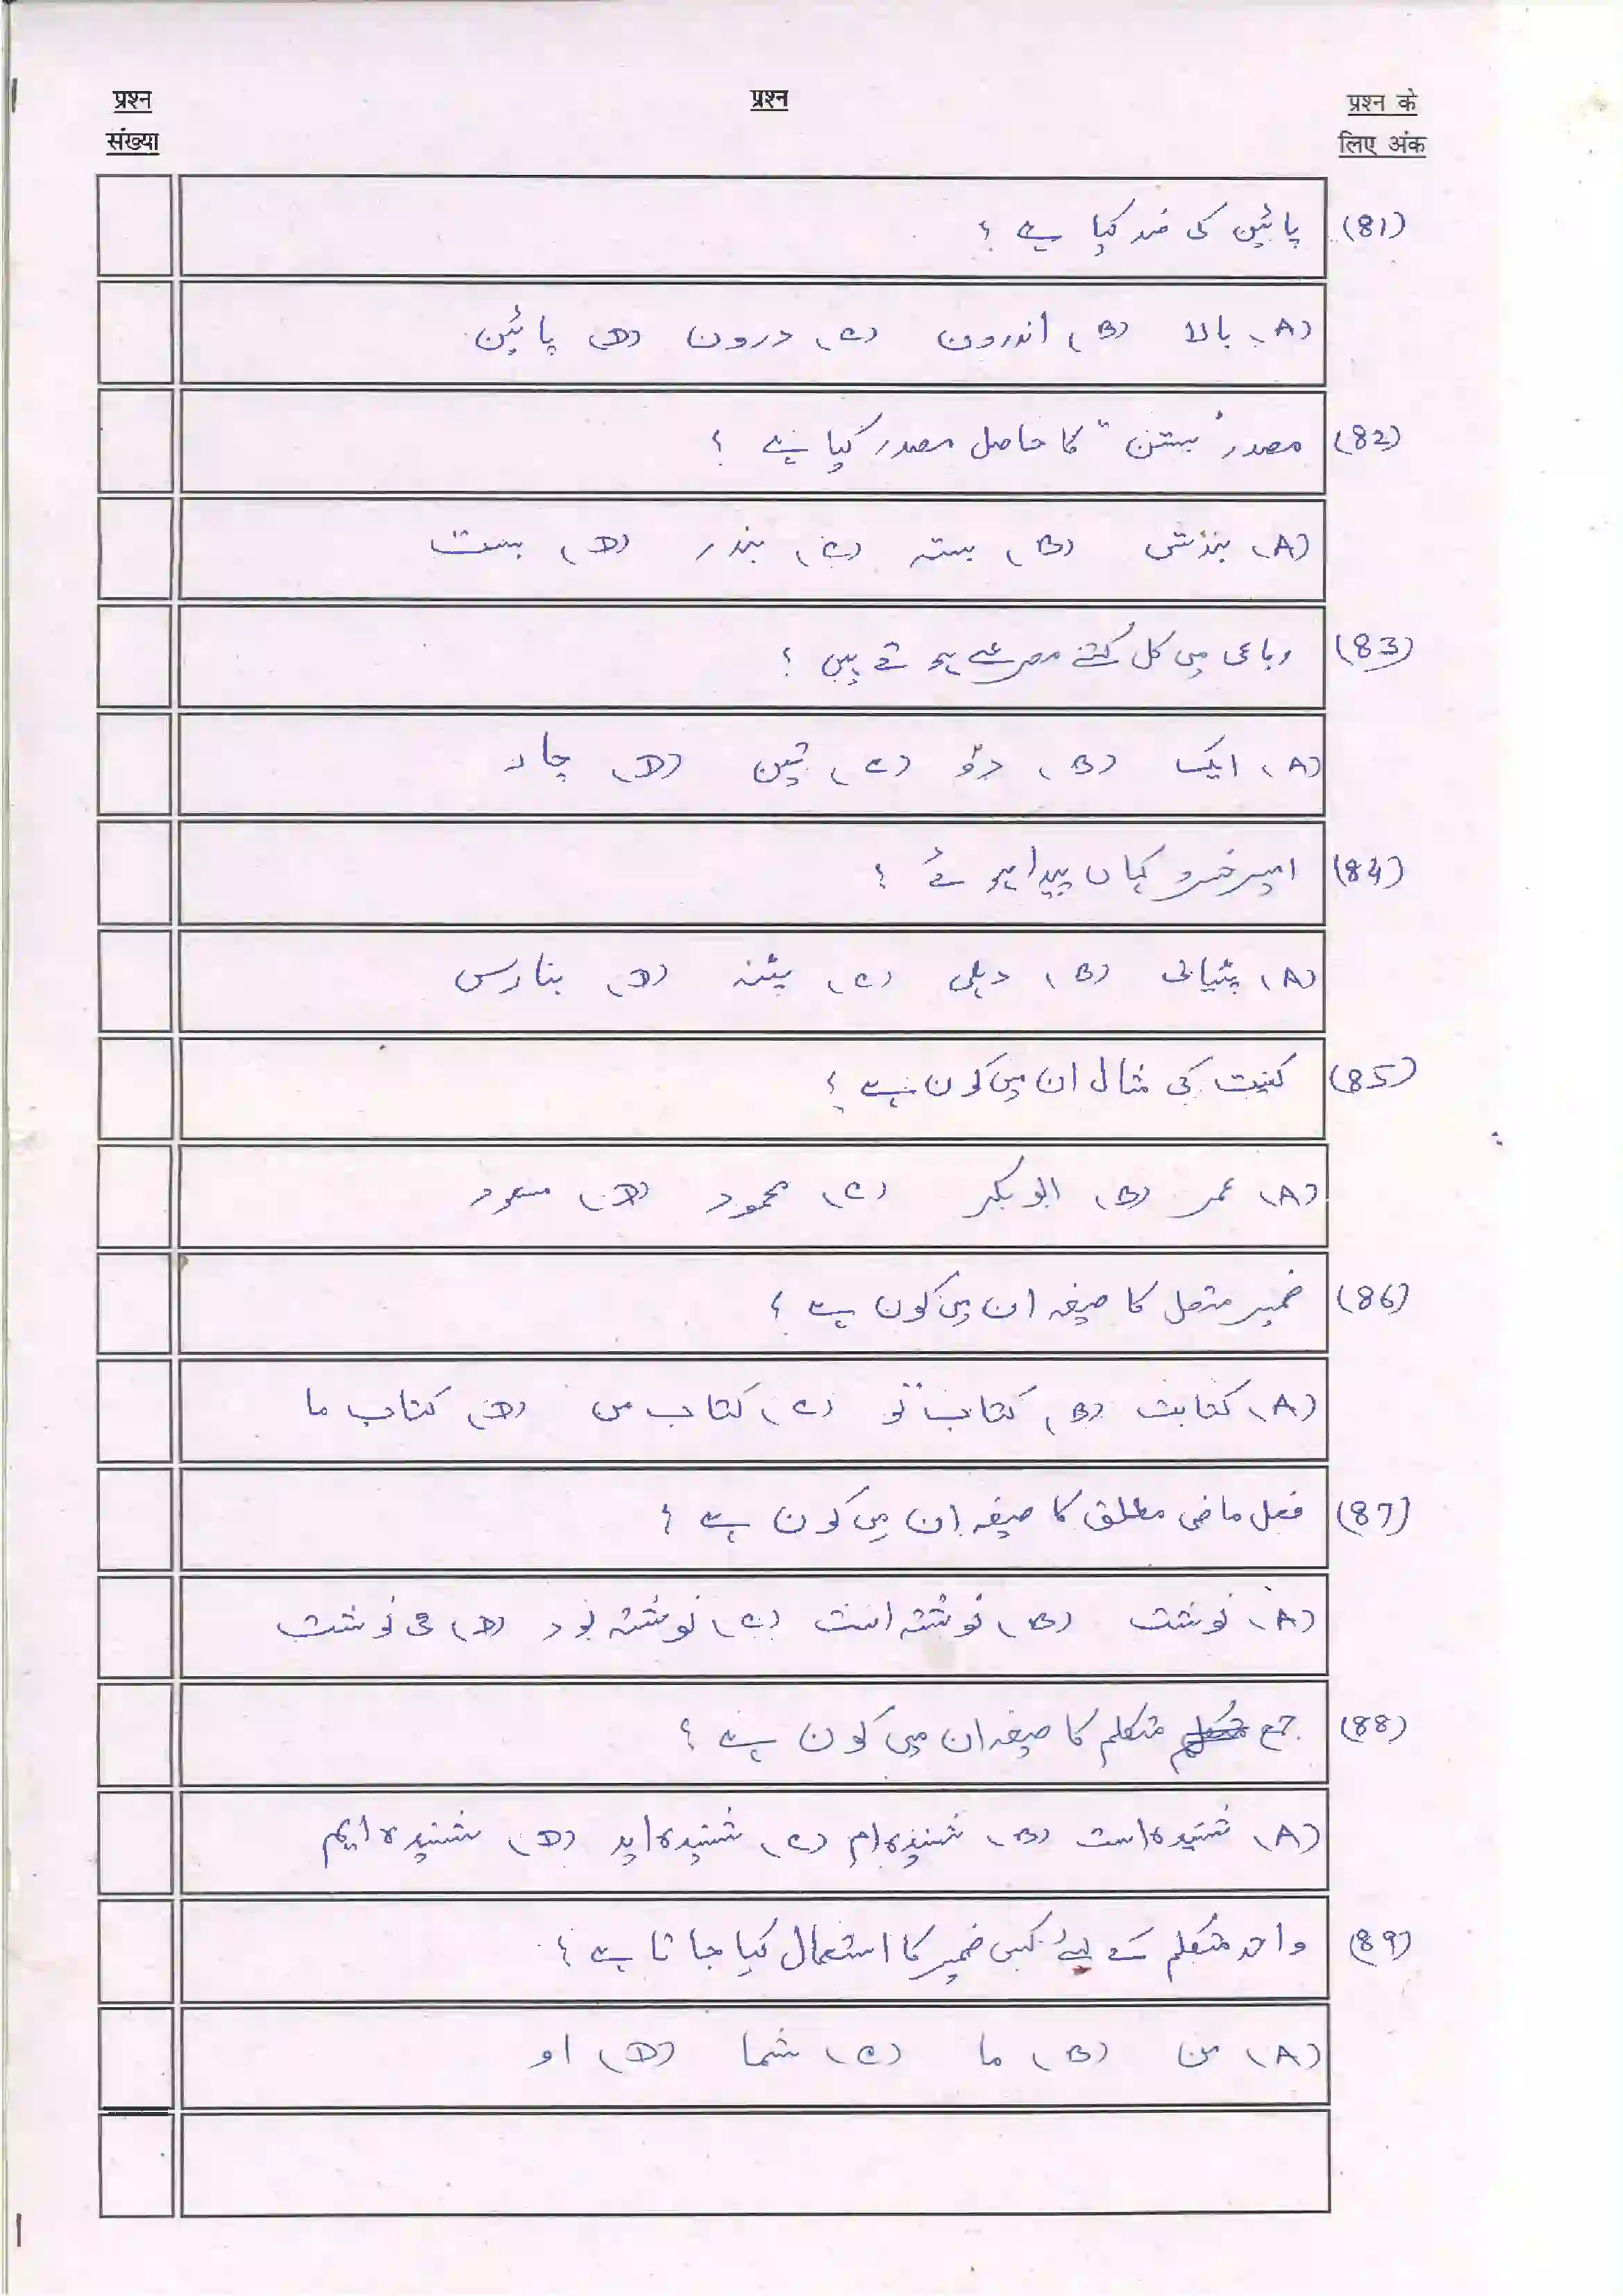 प्रश्न संख्या
प्रश्न
प्रश्न के लिए अंक
(81) پائین کی ضد کیا ہے ؟
(A) بالا (B) اندرون (C) درون (D) پائین
(82) مصدر "بستن" کا حاصل مصدر کیا ہے ؟
(A) بندش (B) بستہ (C) بندر (D) بست
(83) رباعی میں کل کتنے مصرعے ہوتے ہیں ؟
(A) ایک (B) دو (C) تین (D) چار
(84) امیر خسرو کہاں پیدا ہوئے ؟
(A) پٹیالی (B) دہلی (C) پٹنہ (D) بنارس
(85) کنیت کی مثال ان میں کون ہے ؟
(A) عمر (B) ابوبکر (C) محمود (D) مسعود
(86) ضمیر متصل کا صیغہ ان میں کون ہے ؟
(A) کتابت (B) کتاب تو (C) کتاب من (D) کتاب ما
(87) فعل ماضی مطلق کا صیغہ ان میں کون ہے ؟
(A) نوشت (B) نوشتہ است (C) نوشتہ بود (D) می نوشت
(88) جمع متکلم کا صیغہ ان میں کون ہے ؟
(A) شنیدہ است (B) شنیدہ ام (C) شنیدہ اید (D) شنیدہ ایم
(89) واحد متکلم کے لیے کس ضمیر کا استعمال کیا جاتا ہے ؟
(A) من (B) ما (C) شما (D) او